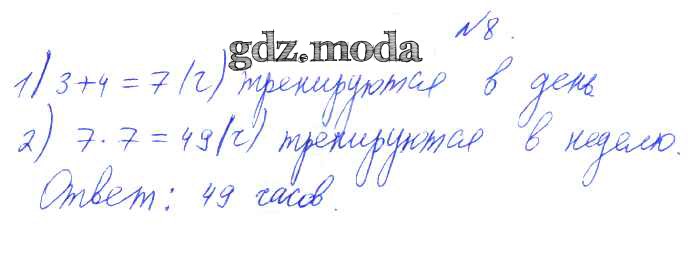 №8.
gdz.moda
1) 3+4=7(ч) тренируются в день
2) 7·7=49(ч) тренируются в неделю.
Ответ: 49 часов.